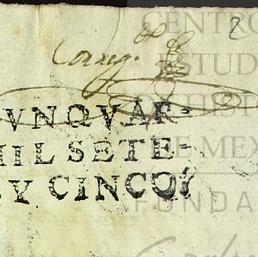 2
Correg.
VNQVAR-
MIL SETE-
Y CINCO
CENTRO
ESTUD
DE HISTO
DE MEX
FUNDA